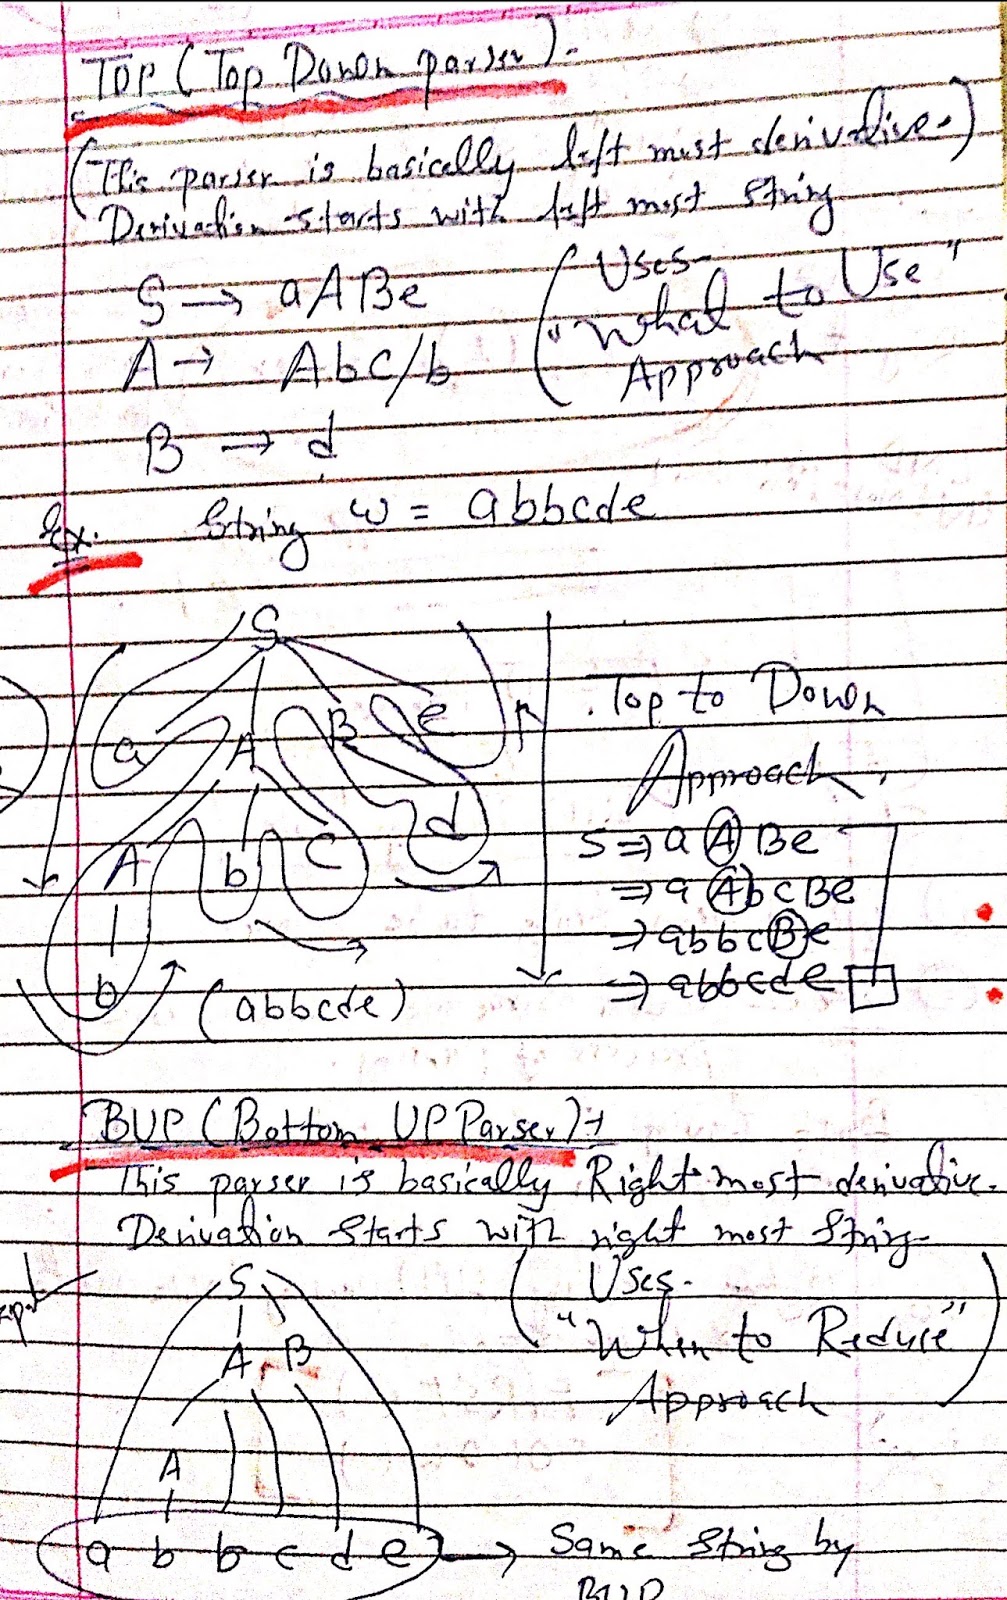 TOP (Top Down parser):-
(This parser is basically left most derivative.)
Derivation starts with left most string
S → aABe
(Uses-
"What to Use"
Approach
A → Abc/b
B → d
Ex. String w = abbcde
S
a A B e
A b c d
b
(abbcde)
Top to Down
Approach.
S ⇒ a A Be
⇒ a A bcBe
⇒ abbc B e
⇒ abbcde
BUP (Bottom UP Parser):+
This parser is basically Right most derivative.
Derivation starts with right most string-
(Uses-
"When to Reduce"
Approach)
S
A B
A
a b b c d e → Same string by
BUP